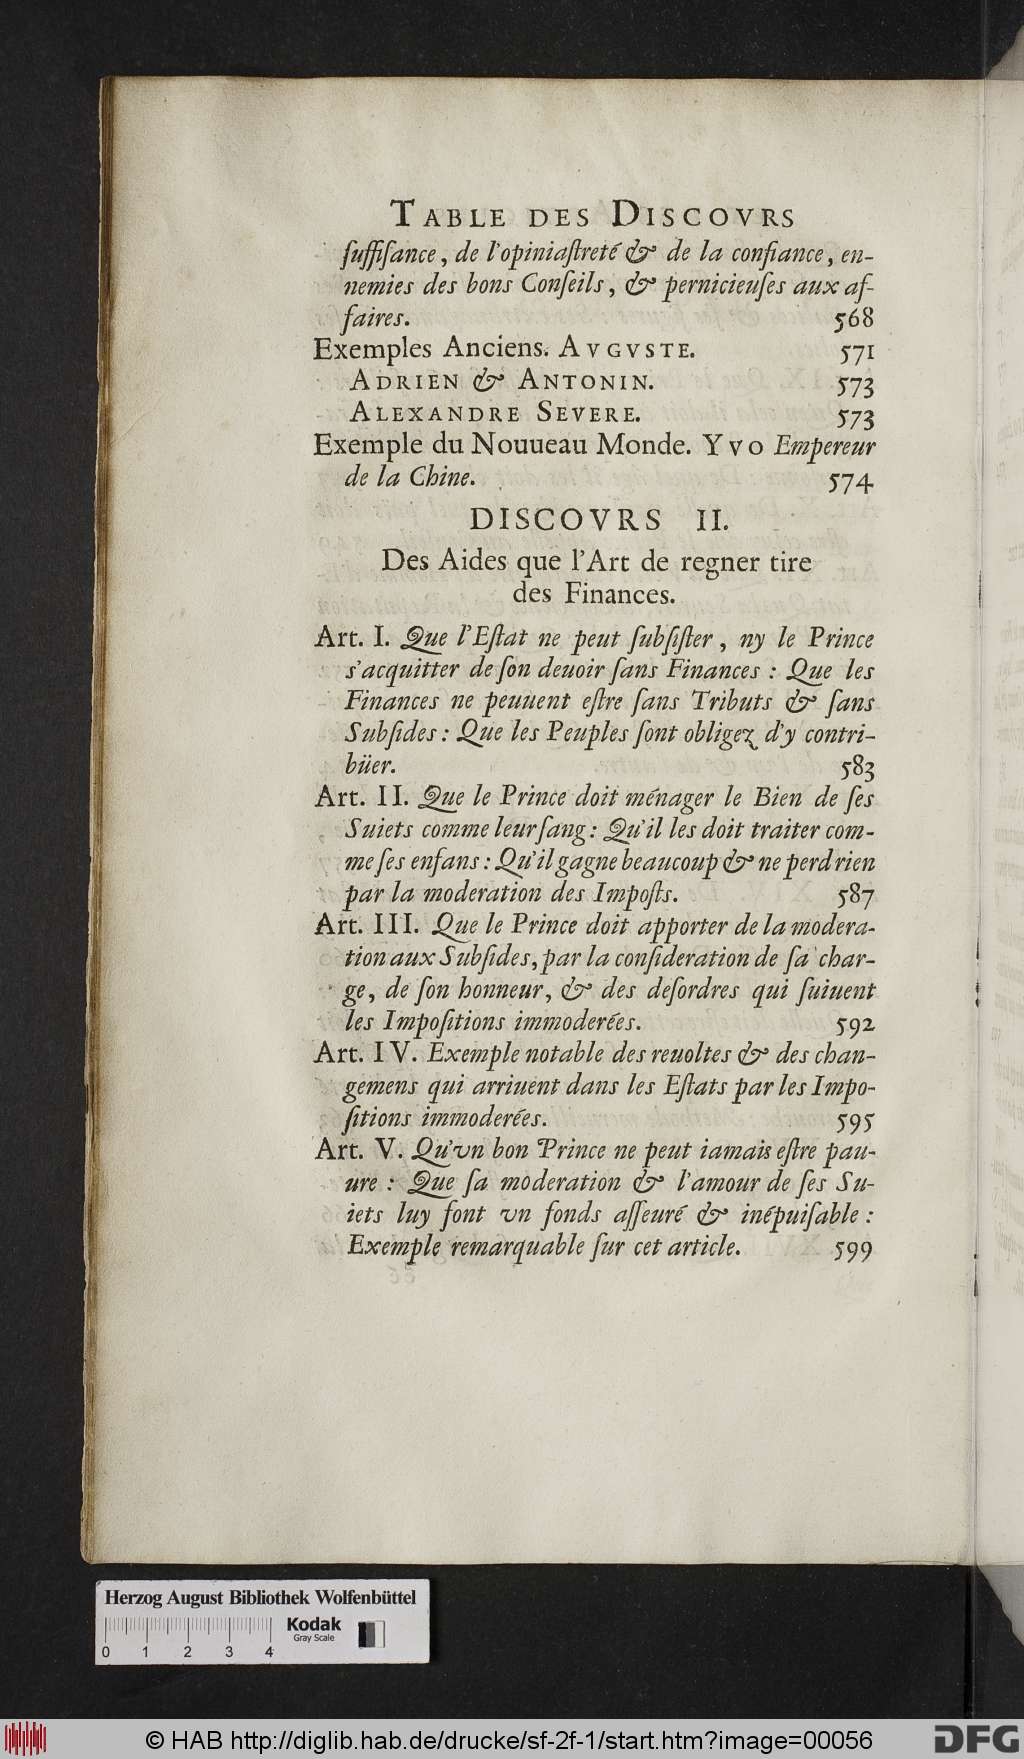 TABLE DES DISCOVRS
ſuffiſance, de l'opiniaſtreté & de la confiance, en-
nemies des bons Conſeils, & pernicieuſes aux af-
faires. 568
Exemples Anciens. AVGVSTE. 571
ADRIEN & ANTONIN. 573
ALEXANDRE SEVERE. 573
Exemple du Nouueau Monde. YVO Empereur
de la Chine. 574
DISCOVRS II.
Des Aides que l'Art de regner tire
des Finances.
Art. I. Que l'Eſtat ne peut ſubſiſter, ny le Prince
s'acquitter de ſon deuoir ſans Finances : Que les
Finances ne peuuent eſtre ſans Tributs & ſans
Subſides : Que les Peuples ſont obligez d'y contri-
büer. 583
Art. II. Que le Prince doit ménager le Bien de ſes
Suiets comme leur ſang : Qu'il les doit traiter com-
me ſes enfans : Qu'il gagne beaucoup & ne perd rien
par la moderation des Impoſts. 587
Art. III. Que le Prince doit apporter de la modera-
tion aux Subſides, par la conſideration de ſa char-
ge, de ſon honneur, & des deſordres qui ſuiuent
les Impoſitions immoderées. 592
Art. IV. Exemple notable des reuoltes & des chan-
gemens qui arriuent dans les Eſtats par les Impo-
ſitions immoderées. 595
Art. V. Qu'vn bon Prince ne peut iamais eſtre pau-
ure : Que ſa moderation & l'amour de ſes Su-
iets luy font vn fonds aſſeuré & inépuiſable :
Exemple remarquable ſur cet article. 599
Herzog August Bibliothek Wolfenbüttel
Kodak
Gray Scale
0 1 2 3 4
© HAB http://diglib.hab.de/drucke/sf-2f-1/start.htm?image=00056
DFG